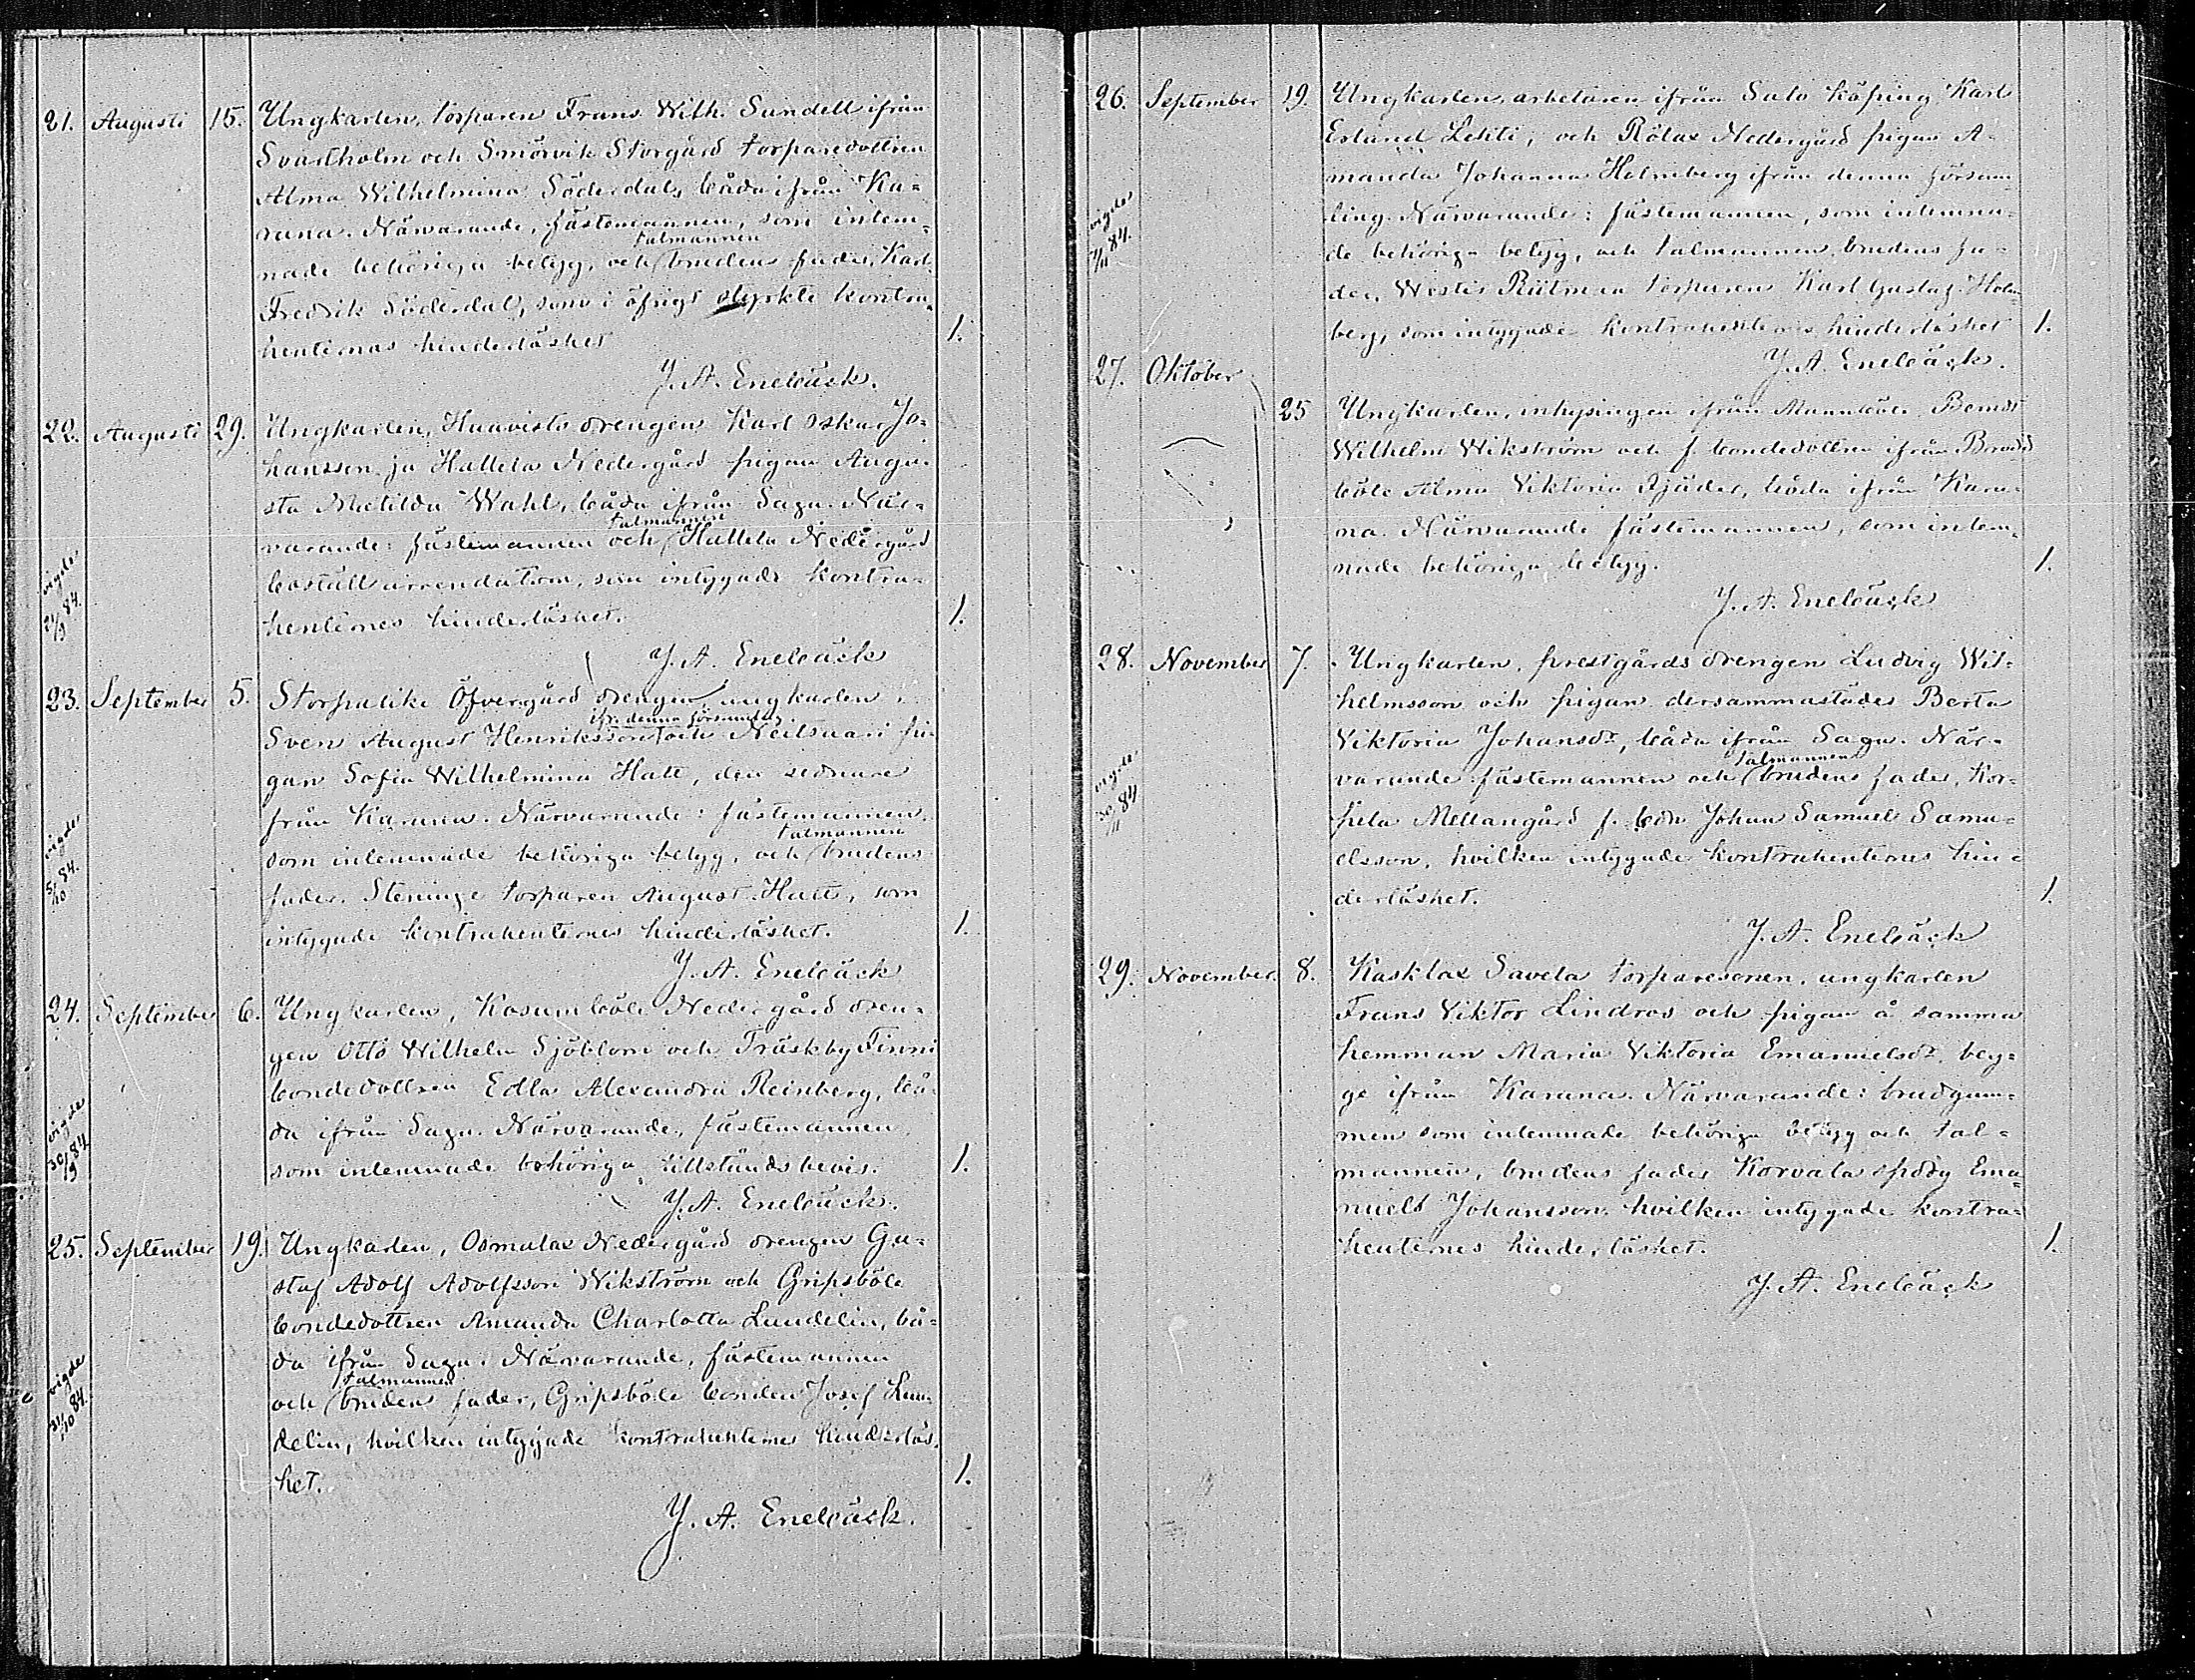 21. Augusti 15. Ungkarlen, torparen Frans Wilh. Sundell ifrån
Svartholm och Smörvik Storgård torparedottren
Alma Wilhelmina Söderdal, båda ifrån Ka-
runa. Närvarande, fästemannen, som inlem-
talmannen
nade behöriga betyg, och brudens fader, Karl
Fredrik Söderdal, som i öfrigt styrkte kontra-
henternas hinderlöshet 1.
J. A. Enebäck.
22. Augusti 29. Ungkarlen, Haavisto drengen Karl Oskar Jo-
hansson ja Hallela Nedergård pigan Augu-
sta Matilda Wahl, båda ifrån Sagu. När-
talmannen
varande: fästemannen och Hallela Nedergård
boställ arrendatorn, som intygade kontra-
henternes hinderlöshet. 1.
vigde 21/9 84.
J. A. Enebäck
23. September 5. Storpaltike Öfvergård drengen ungkarlen,
ifr. denna församling
Sven August Henriksson och Neitsaari pi-
gan Sofia Wilhelmina Hatt, den sednare
från Karuna. Närvarande: fästemannen,
talmannen
som inlemnade behöriga betyg, och brudens
fader, Steninge torparen August Hatt, som
intygade kontrahenternes hinderlöshet. 1.
vigde 5/10 84.
J. A. Enebäck
24. September 6. Ungkarlen, Kosumböle Nedergård dren-
gen Otto Wilhelm Sjöblom och Träskby Finni
bondedottren Edla Alexandra Reinberg, bå-
da ifrån Sagu. Närvarande, fästemannen,
som inlemnade behöriga tillstånds bevis. 1.
vigde 30/9 84
J. A. Enebäck.
25. September 19. Ungkarlen, Osmalax Nedergård drengen Gu-
staf Adolf Adolfsson Wikström och Gripsböle
bondedottren Amanda Charlotta Lundelin, bå-
da ifrån Sagu. Närvarande, fästemannen
talmannen
och bruden fader, Gripsböle bonden Josef Lun-
delin, hvilken intygade kontrahenternes hinderlös-
het. 1.
vigde 31/10 84.
J. A. Enebäck.
26. September 19. Ungkarlen, arbetaren ifrån Salo köping Karl
Erland Lehti, och Rölax Nedergård pigan A-
manda Johanna Holmberg ifrån denna försam-
ling. Närvarande: fästemannen, som inlemna-
de behöriga betyg, och talmannen, brudens fa-
der, Wester Riitmaa torparen Karl Gustaf Holm-
berg, som intygade kontrahenternes hinderlöshet 1.
vigde 7/11 84.
J. A. Enebäck.
27. Oktober 25 Ungkarlen, inhysingen ifrån Mannböle Berndt
Wilhelm Wikström och f. bondedottren ifrån Brudd
böle Alma Viktoria Sjöder, båda ifrån Karu-
na. Närvarande fästemannen, som inlem-
nade behöriga betyg. 1.
J. A. Enebäck
28. November 7. Ungkarlen, prestgårds drengen Ludvig Wil-
helmsson och pigan dersammastädes Berta
Viktoria Johansdr, båda ifrån Sagu. När-
talmannen
varande fästemannen och brudens fader, Kor-
pela Mellangård f. bdn Johan Samuel Samu-
elsson, hvilken intygade kontrahenternes hin-
derlöshet. 1.
vigde 30/11 84
J. A. Enebäck
29. November. 8. Kasklax Savela torparesonen, ungkarlen
Frans Viktor Lindros och pigan å samma
hemman Maria Viktoria Emanuelsdr, beg-
ge ifrån Karuna. Närvarande: brudgum-
men som inlemnade behöriga betyg och tal-
mannen, brudens fader Korvala Ema-
nuel Johansson, hvilken intygade kontra-
henternes hinderlöshet. 1.
J. A. Enebäck